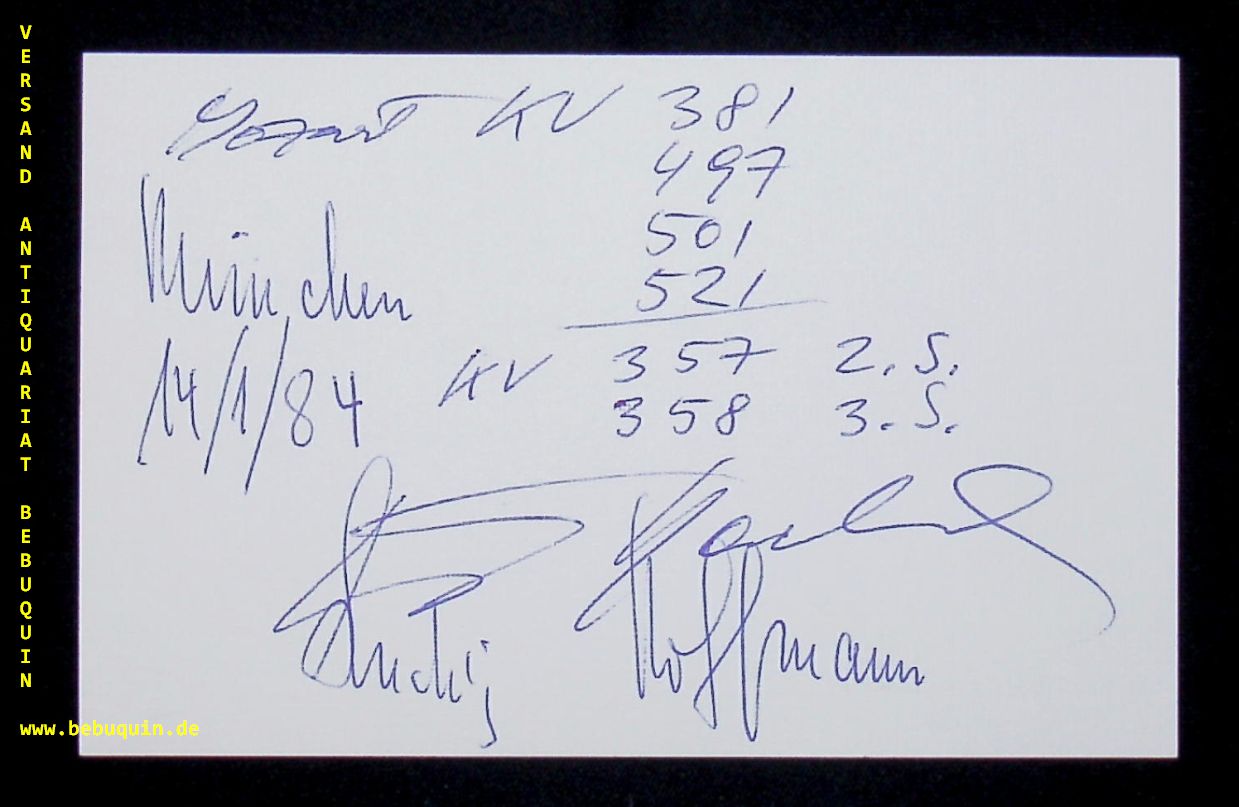 VERSAND ANTIQUARIAT BEBUQUIN
Mozart KV 381
497
501
521
München
14/1/84
KV 357 2. S.
358 3. S.
Ludwig Hoffmann
www.bebuquin.de